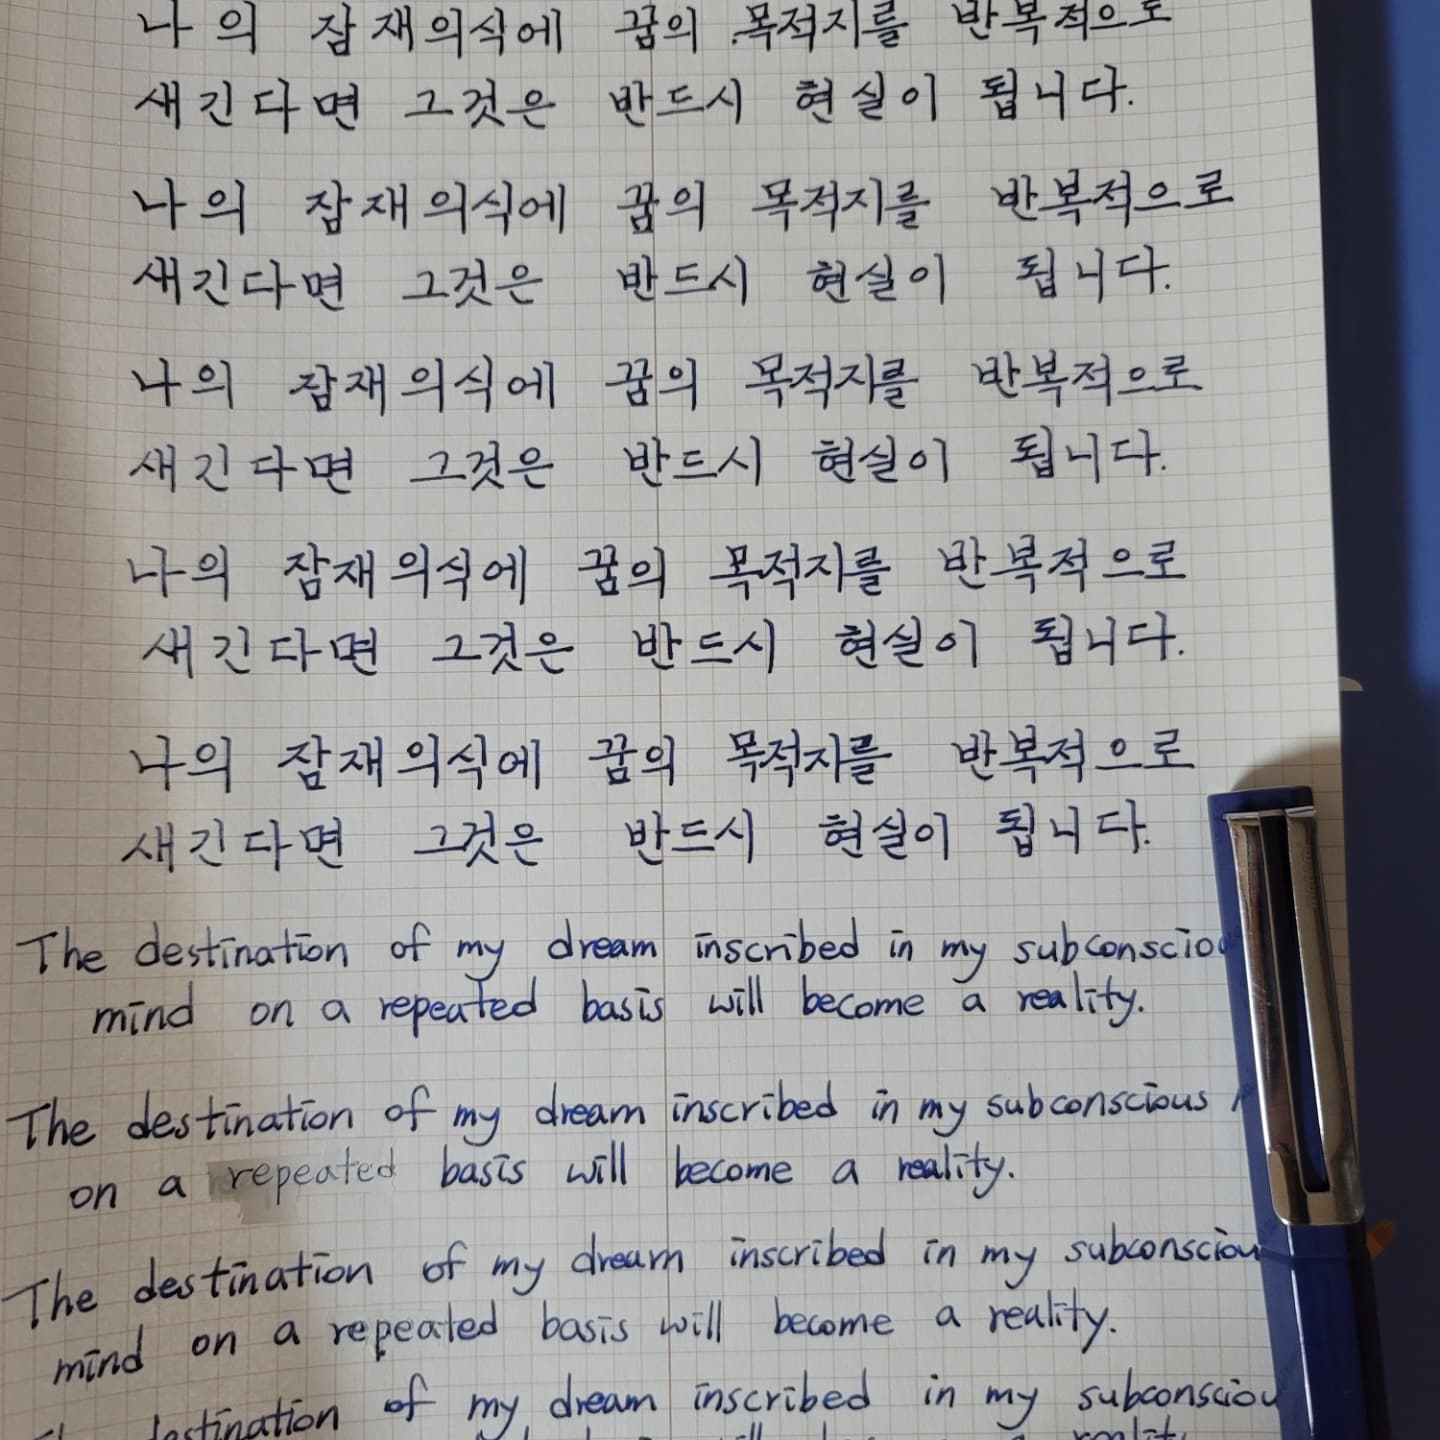 나의 잠재의식에 꿈의 목적지를 반복적으로
새긴다면 그것은 반드시 현실이 됩니다.
나의 잠재의식에 꿈의 목적지를 반복적으로
새긴다면 그것은 반드시 현실이 됩니다.
나의 잠재의식에 꿈의 목적지를 반복적으로
새긴다면 그것은 반드시 현실이 됩니다.
나의 잠재의식에 꿈의 목적지를 반복적으로
새긴다면 그것은 반드시 현실이 됩니다.
나의 잠재의식에 꿈의 목적지를 반복적으로
새긴다면 그것은 반드시 현실이 됩니다.
The destination of my dream inscribed in my subconsciou
mind on a repeated basis will become a reality.
The destination of my dream inscribed in my subconscious
on a repeated basis will become a reality.
The destination of my dream inscribed in my subconsciou
mind on a repeated basis will become a reality.
destination of my dream inscribed in my subconsciou